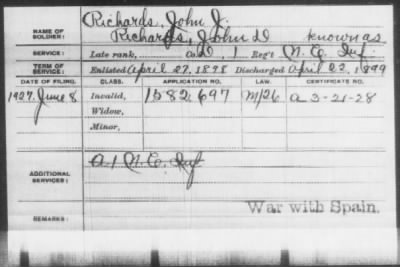 NAME OF SOLDIER: Richards, John J.
Richards, John D known as
SERVICE: Late rank, Co. D, 1 Reg't N. C. Inf.
TERM OF SERVICE: Enlisted April 27, 1898 Discharged April 22, 1899
DATE OF FILING. CLASS. APPLICATION NO. LAW. CERTIFICATE NO.
1927, June 8 Invalid, 1582697 M/26 a 3-21-28
Widow,
Minor,
ADDITIONAL SERVICES: A 1 N. C. Inf
War with Spain.
REMARKS: